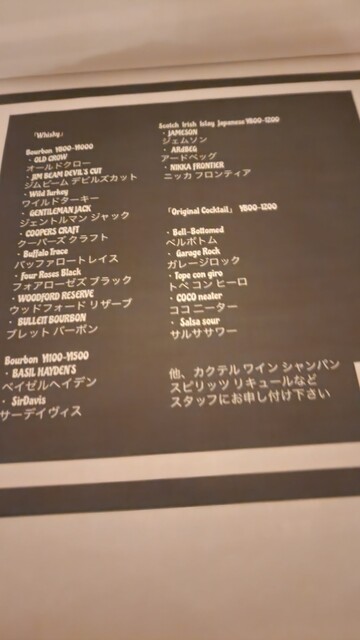 「Whisky」
Bourbon ¥800-¥1000
・OLD CROW
オールドクロー
・JIM BEAM DEVIL'S CUT
ジムビーム デビルズカット
・Wild Turkey
ワイルドターキー
・GENTLEMAN JACK
ジェントルマン ジャック
・COOPERS CRAFT
クーパーズ クラフト
・Buffalo Trace
バッファロートレイス
・Four Roses Black
フォアローゼズ ブラック
・WOODFORD RESERVE
ウッドフォード リザーブ
・BULLEIT BOURBON
ブレット バーボン
Bourbon ¥1100-¥1500
・BASIL HAYDEN'S
ベイゼルヘイデン
・SirDavis
サーデイヴィス
Scotch Irish Islay Japanese ¥800-1200
・JAMESON
ジェムソン
・ARDBEG
アードベッグ
・NIKKA FRONTIER
ニッカ フロンティア
「Original Cocktail」 ¥800-1200
・Bell-Bottomed
ベルボトム
・Garage Rock
ガレージロック
・Tope con giro
トペ コン ヒーロ
・COCO neater
ココ ニーター
・Salsa sour
サルササワー
他、カクテル ワイン シャンパン
スピリッツ リキュールなど
スタッフにお申し付け下さい